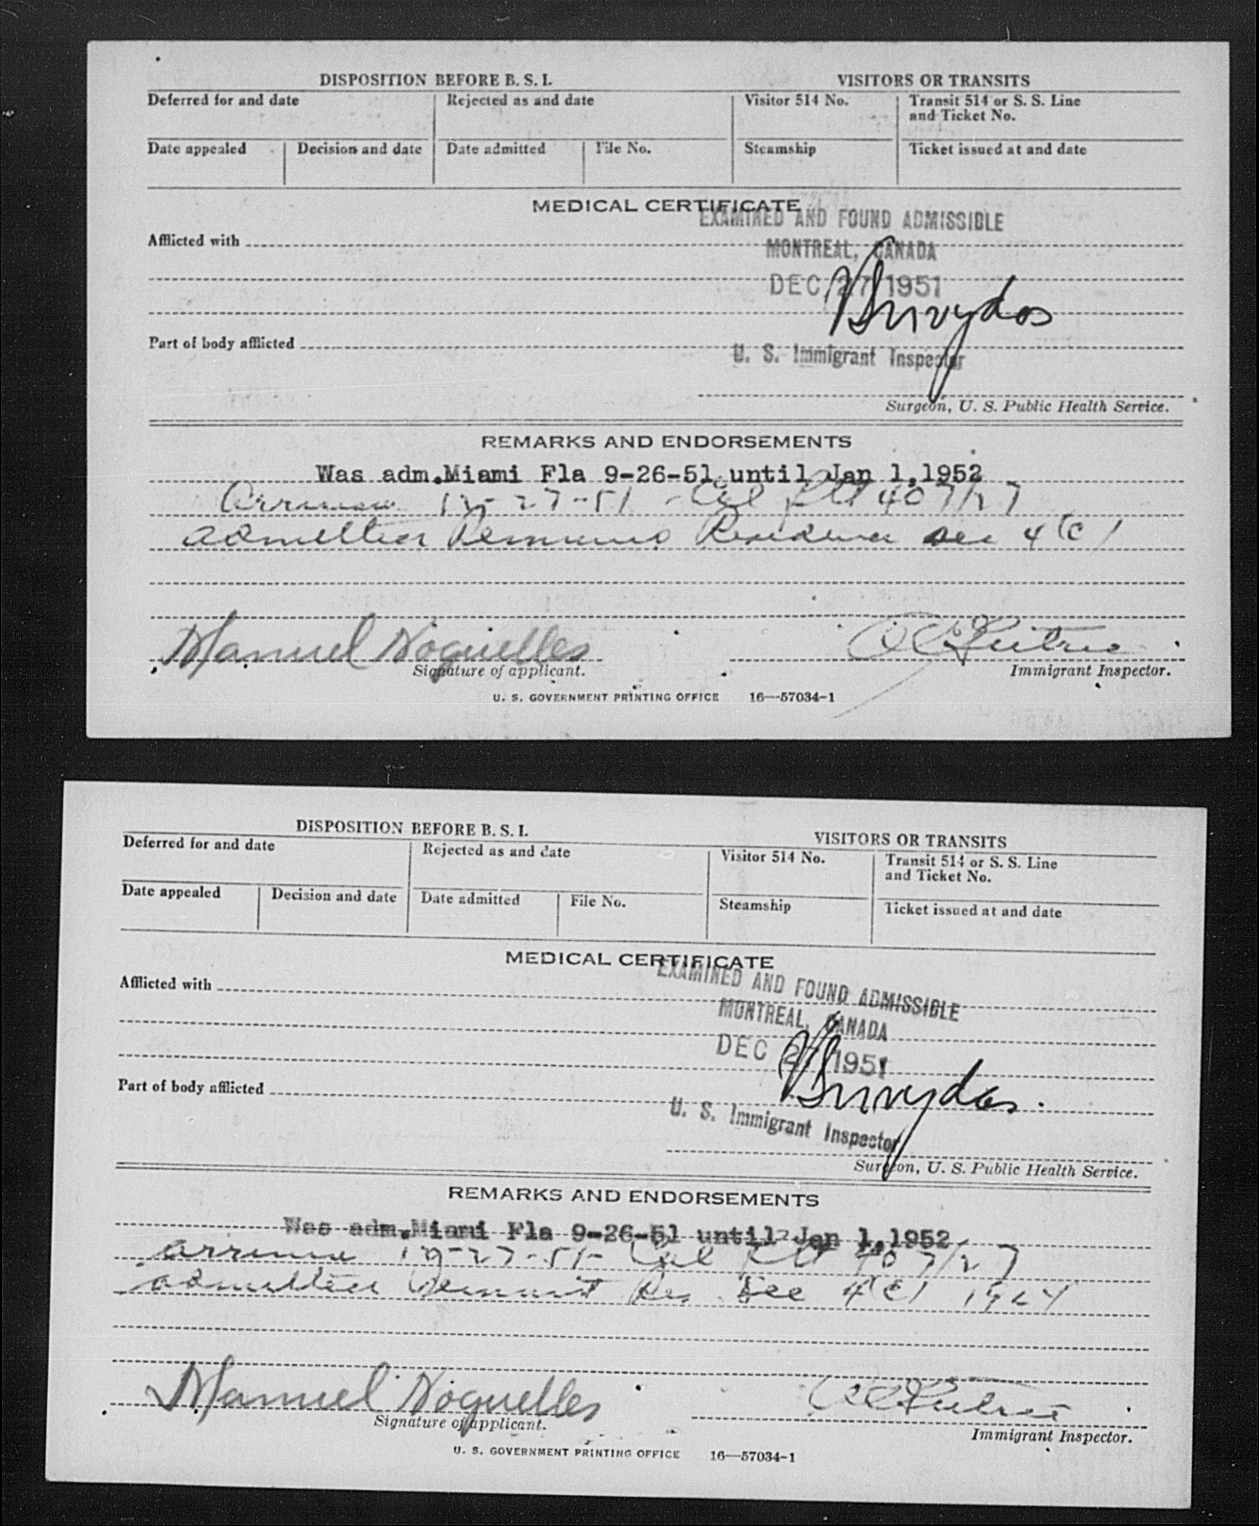 DISPOSITION BEFORE B. S. I. VISITORS OR TRANSITS
Deferred for and date Rejected as and date Visitor 514 No. Transit 514 or S. S. Line and Ticket No.
Date appealed Decision and date Date admitted File No. Steamship Ticket issued at and date
MEDICAL CERTIFICATE
EXAMINED AND FOUND ADMISSIBLE
Afflicted with
MONTREAL, CANADA
DEC 27 1951
Part of body afflicted
U. S. Immigrant Inspector
Surgeon, U. S. Public Health Service.
REMARKS AND ENDORSEMENTS
Was adm.Miami Fla 9-26-51 until Jan 1,1952
12-27-51 407/27
admitted Residence sec 4(c)
Manuel Noguelles
Signature of applicant. Immigrant Inspector.
U. S. GOVERNMENT PRINTING OFFICE 16—57034-1
DISPOSITION BEFORE B. S. I. VISITORS OR TRANSITS
Deferred for and date Rejected as and date Visitor 514 No. Transit 514 or S. S. Line and Ticket No.
Date appealed Decision and date Date admitted File No. Steamship Ticket issued at and date
MEDICAL CERTIFICATE
EXAMINED AND FOUND ADMISSIBLE
Afflicted with
MONTREAL, CANADA
DEC 27 1951
Part of body afflicted
U. S. Immigrant Inspector
Surgeon, U. S. Public Health Service.
REMARKS AND ENDORSEMENTS
Was adm.Miami Fla 9-26-51 until Jan 1,1952
12-27-51- 407/27
admitted Res Sec 4(c) 1924
Manuel Noguelles
Signature of applicant. Immigrant Inspector.
U. S. GOVERNMENT PRINTING OFFICE 16—57034-1